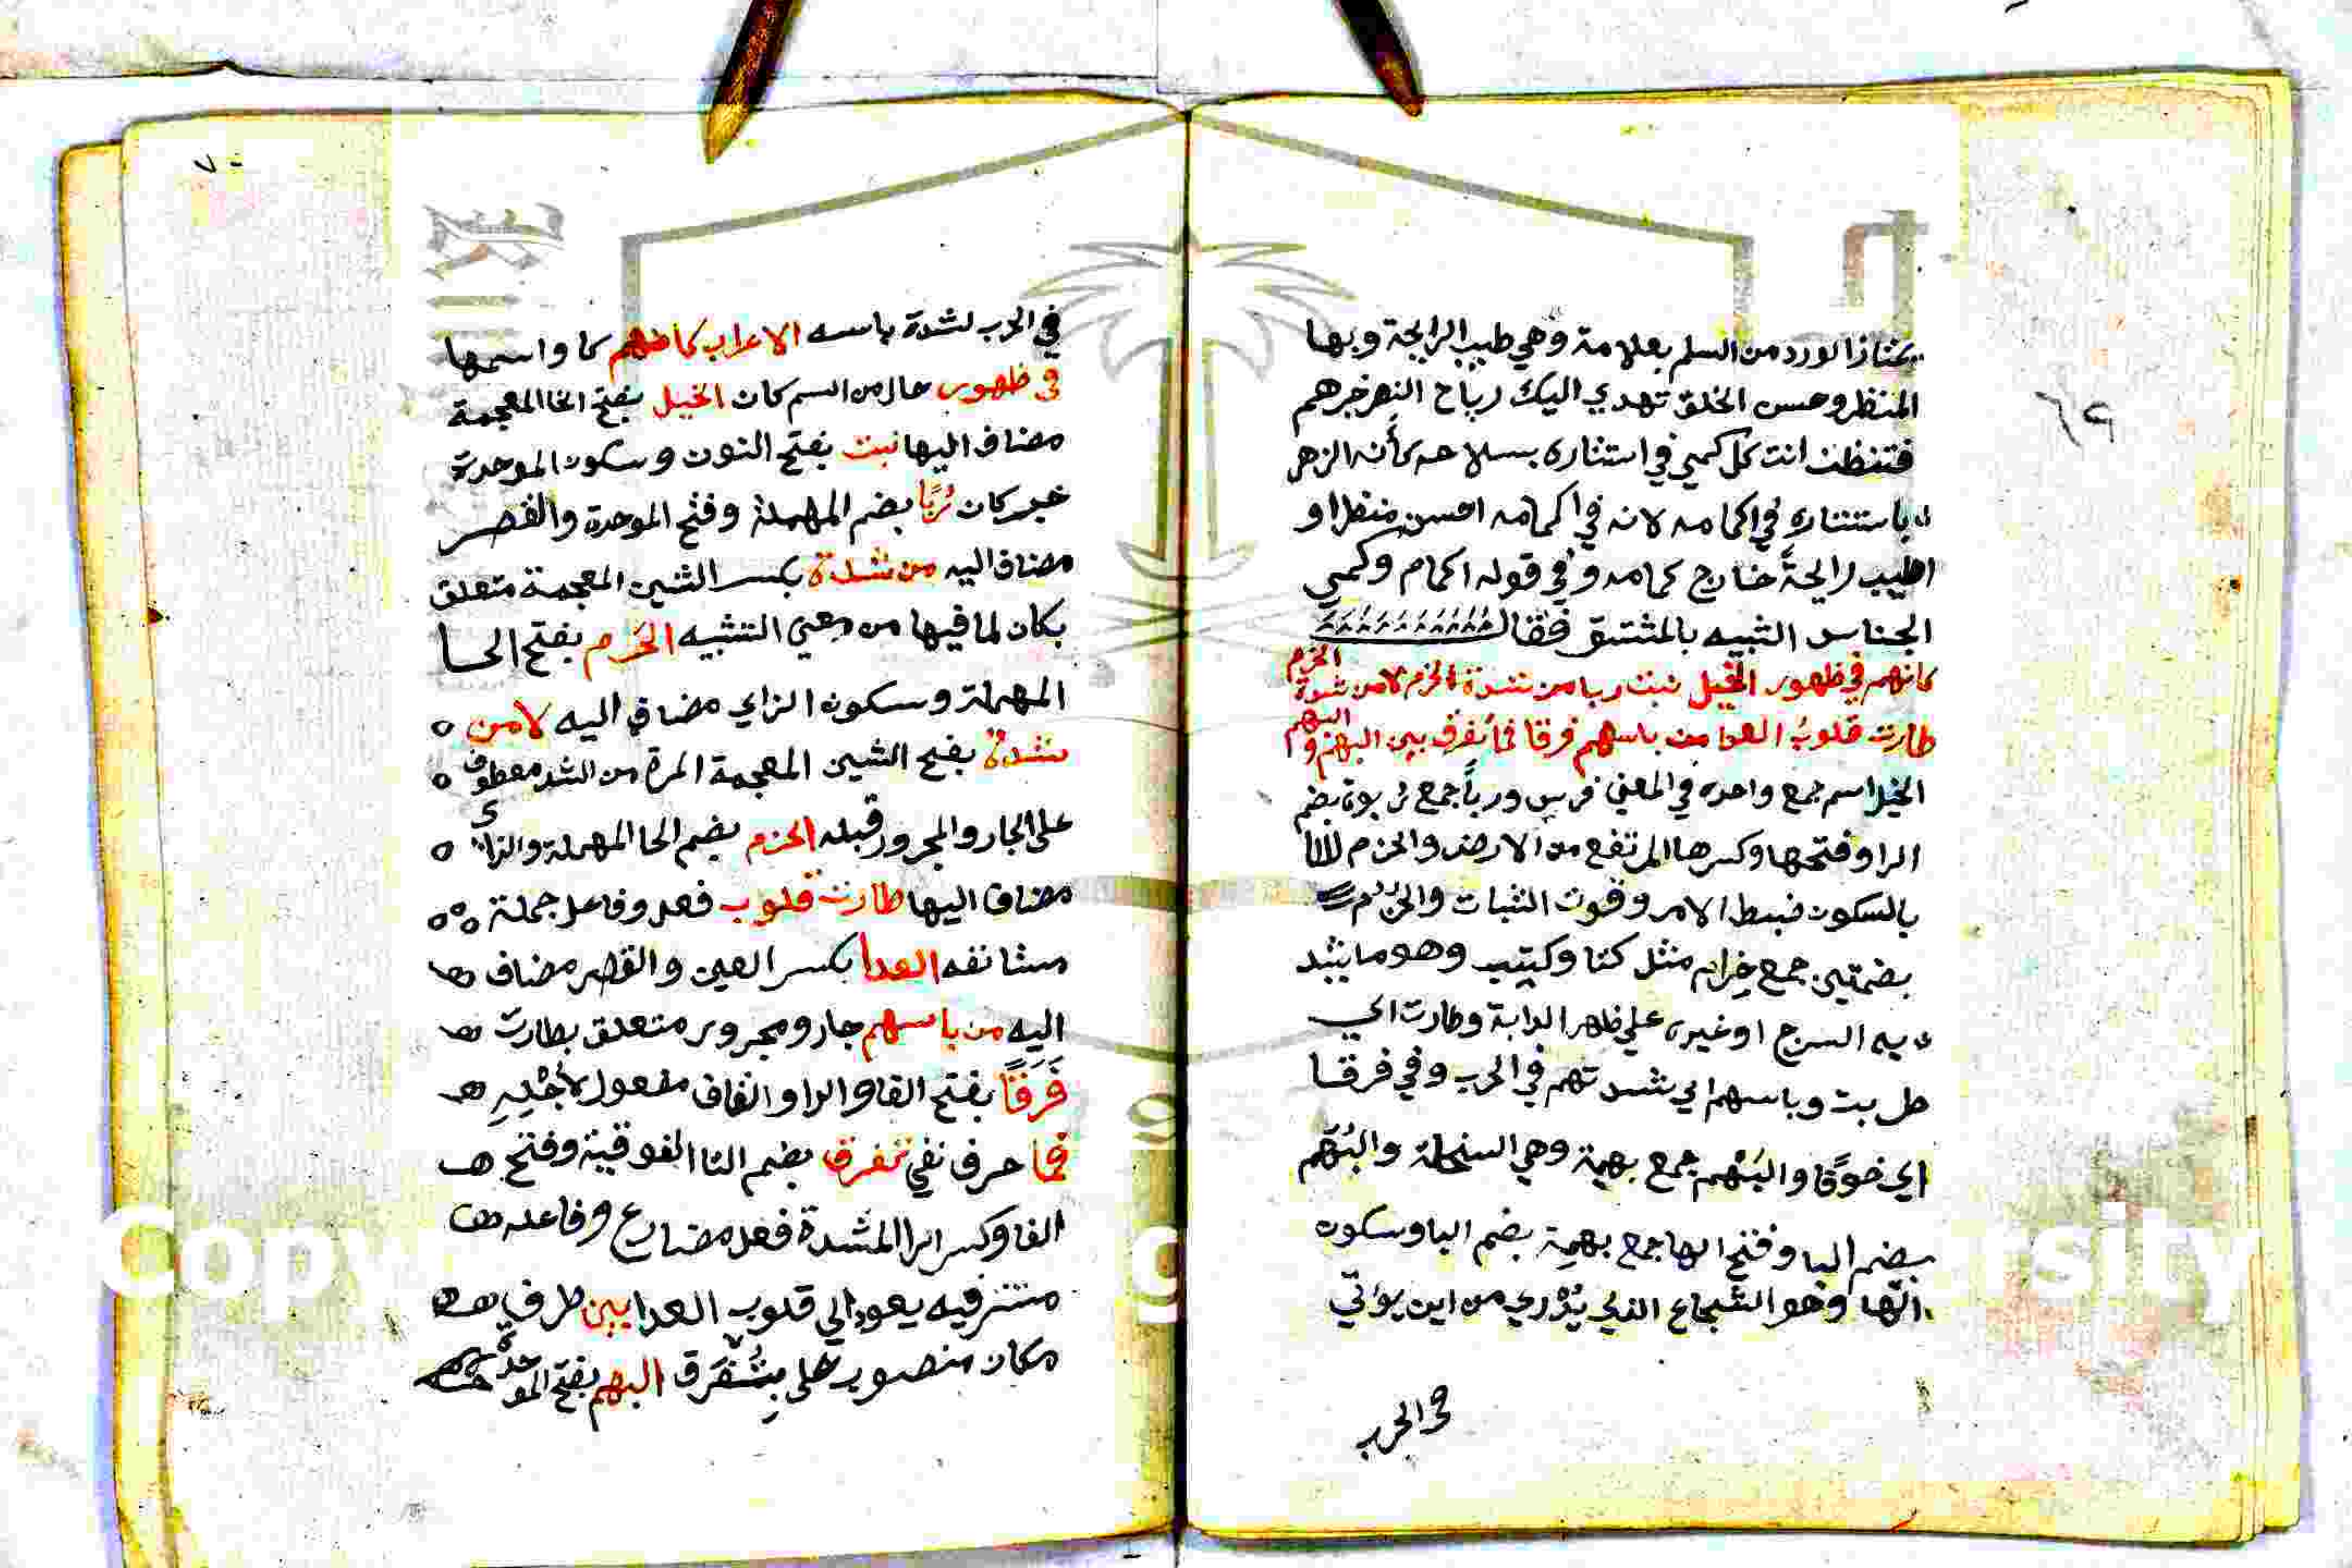 يمتاز الورد من السلم بعلامة وهي طيب الرايحة وبها
المنظر وحسن الخلق تهدي اليك رياح النصر خبرهم
فتظن انت كل كمي في استتاره بسلاحه كأنه الزهر
باستتاره في اكمامه لانه في اكمامه احسن منظرا و
اطيب رايحة خارج كمامه وفي قوله اكمام وكمي
الجناس الشبيه بالمشتق فقال
كانهم في ظهور الخيل نبت ربا من شدة الحزم لا من شدة الحزم
طارت قلوب العدا من باسهم فرقا فما تفرق بين البهم والبهم
الخيل اسم جمع واحده في المعني فرس ورباً جمع ربوة بضم
الرا وفتحها وكسرها المرتفع من الارض والحزم
بالسكون ضبط الامر وقوت الثبات والحزم
بضمتين جمع حزام مثل كتا وكتب وهو ما يشد
به السرج اوغيره علي ظهر الدابة وطارت اي
طربت وباسهم اي شدتهم في الحرب وفي فرقا
اي خوفا والبَهْم جمع بهمة وهي السخلة والبُهَم
بضم البا وفتح الها جمع بهمة بضم البا وسكون
الها وهو الشجاع الذي يُدْري من اين يؤتي
في الحرب
٧٠
في الحرب لشدة باسه الاعراب كانهم كا واسمها
في ظهور حال من اسم كان الخيل بفتح الخا المعجمة
مضاف اليها نبت بفتح النون وسكون الموحدة
خبر كان رُبًا بضم المهملة وفتح الموحدة والقصر
مضاف اليه من شدة بكسر الشين المعجمة متعلق
بكان لما فيها من معني التشبيه الحزم بفتح الحا
المهملة وسكون الزاي مضاف اليه لامن
شدة بفتح الشين المعجمة المرة من الشد معطوف
علي الجار والمجرور قبله الحزم بضم الحا المهملة والزاي
مضاف اليها طارت قلوب فعل وفاعل جملة
مستانفه العدا بكسر العين والقصر مضاف
اليه من باسهم جار ومجرور متعلق بطارت
فَرَقًا بفتح الفا والرا والقاف مفعول لاجْلِهِ
فما حرف نفي تفرق بضم التا الفوقية وفتح
الفا وكسر الرا المشدة فعل مضارع وفاعله
مستتر فيه يعود الي قلوب العدا بين ظرف
مكان منصوب علي بتُفرق البهم بفتح الموحدة